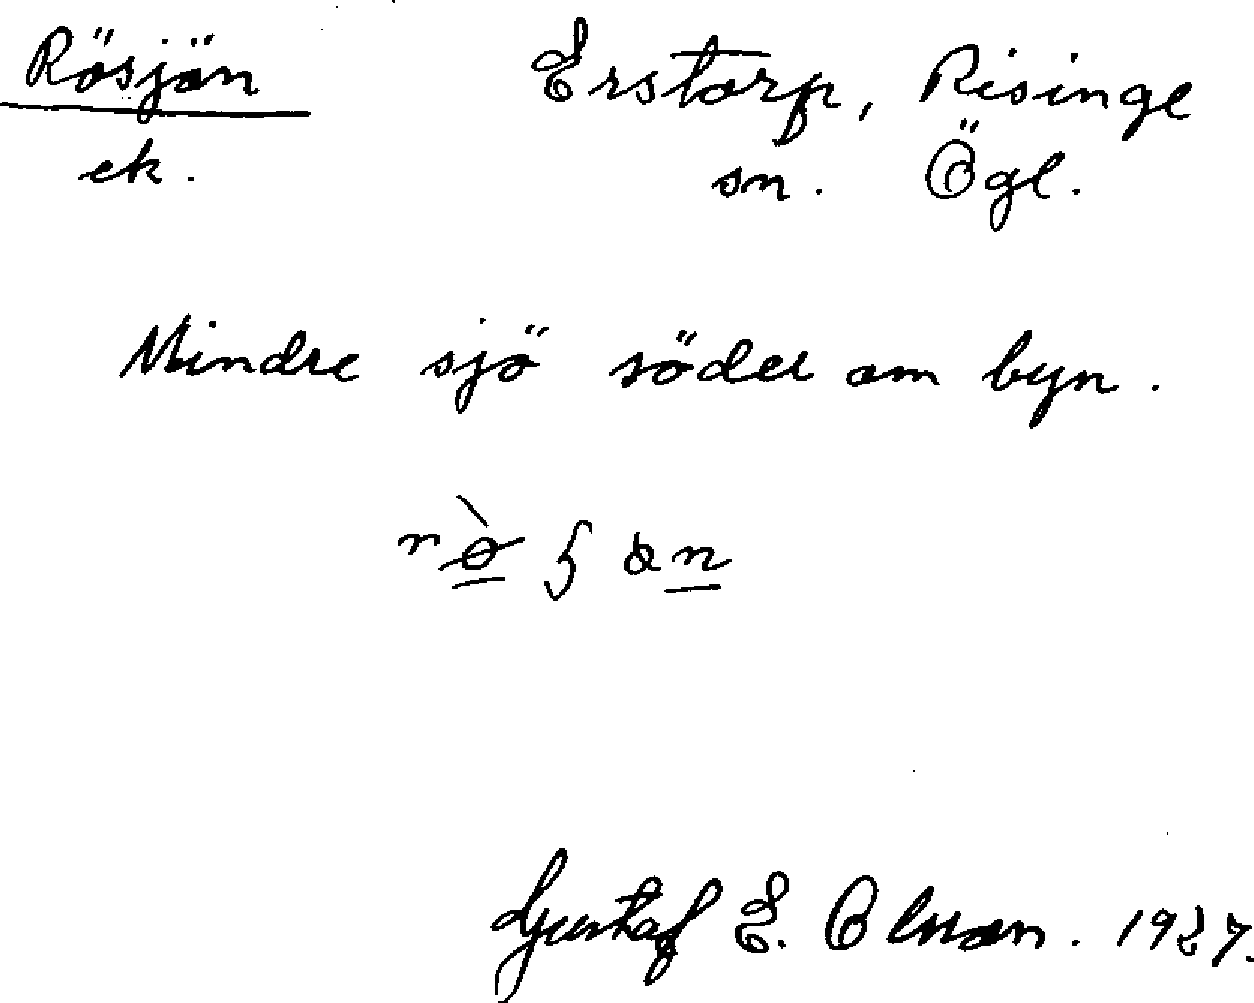 Rösjön Erstorp, Risinge
ek. sn. Ögl.
Mindre sjö söder om byn.
Gustaf E. Olsson. 1927.